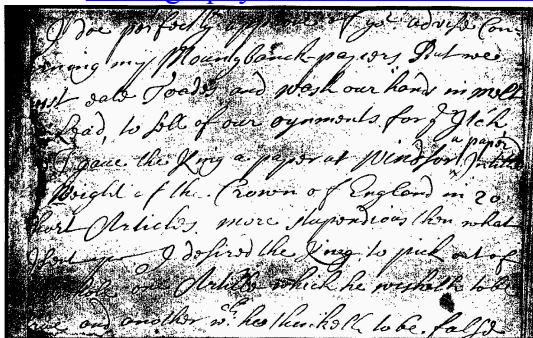 I doe perfectly approve of yor. advise Con-
cerning my Mountybanck-papers, But wee
must eate Toades and wash our hands in melted
Lead, to sell of our oyntments for ye Itch
I gave the King a paper at Windsor a paper Intituled
Weight of the Crown of England in 20
short Articles more stupendious then what
I sent I desired the King to pick out of
one Article which he wisheth to be
true and another wch hee thinketh to be false